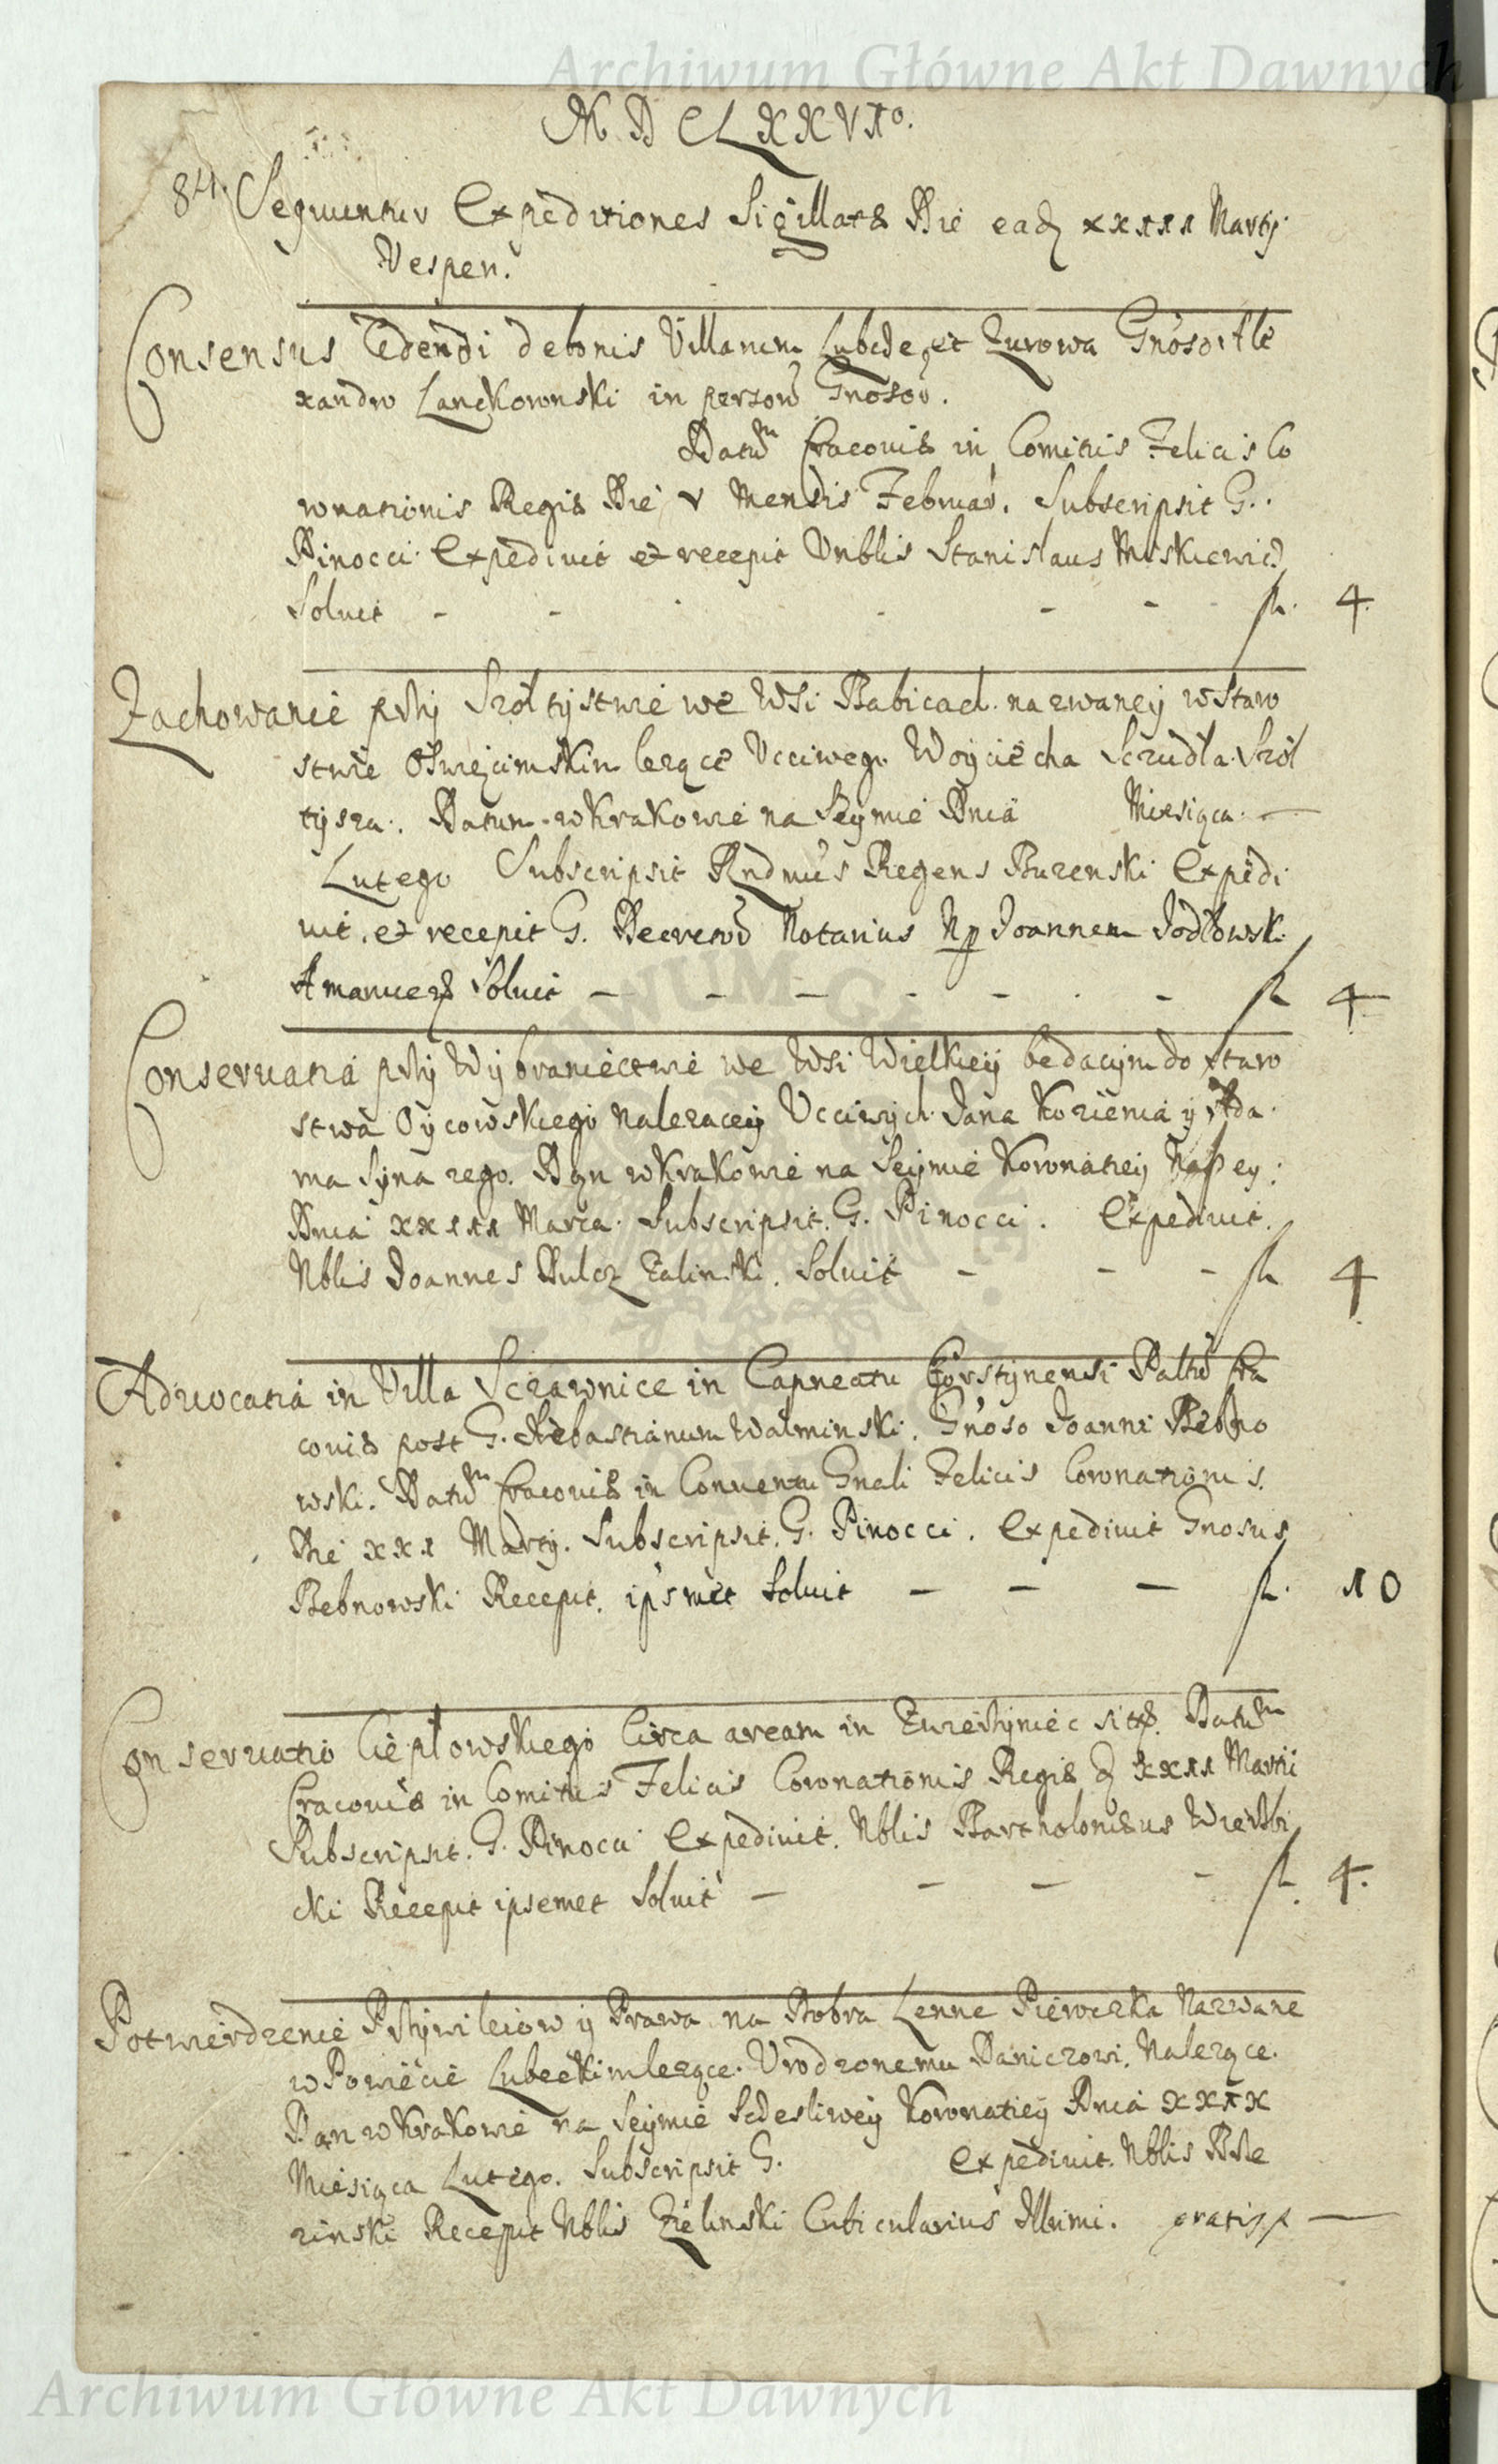 Archiwum Główne Akt Dawnych
M D C L X X V I⁰.
84. Sequuntur Expeditiones Sigillatæ Die ead xxiii Martij
Vesperi.
Consensus Cedendi de bonis Villarum et Zurowa Gnoso Ale
xandro Lanckownski in person Gnosor.
Datum Cracoviæ in Comitiis Felicis Co
ronationis Regiæ Die v Mensis Februar. Subscripsit G.
Pinocci. Expedivit et recepit Nblis Stanislaus Miskiewicz
Soluit - - - - - - fl. 4.
Zachowanie przy Szoltystwie we Wsi Babicach nazwaney w Staro
stwie Oswięcimskim lezące Ucciwego Woyciecha Sczudła Szol
tysza. Datum w Krakowie na Seymie Dnia Miesiąca —
Lutego Subscripsit Rndmus Regens Buzenski Expedi
uit. et recepit G. Decretor Notarius Np Joannem Jodłowsk.
Amanuens Soluit — - — - - . - fl 4
Conservatia przy Wybraniectwie we Wsi Wielkiey będacym do Staro
stwa Oycowskiego Nalezacey Ucciwych Jana Korzenia y Ada
ma Syna iego. Dan w Krakowie na Seymie Koronatiey Naszey.
Dnia xxiii Marca. Subscripsit G. Pinocci. Expedivit.
Nblis Joannes Zalinski. Soluit - - - fl 4
Advocatia in Villa Sczawnice in Capneatu Czorstynensi Paltus Cra
coviæ post G. Sebastianum Walminski. Gnoso Joanni Bebno
wski. Datum Cracoviæ in Conventu Gnali Felicis Coronationis.
Die xxi Martij. Subscripsit. G. Pinocci. Expedivit Gnosus
Bebnowski Recepit. ipsmet Soluit — — — fl. 10
Conservatio Cieplowskiego Circa aream in Zwierzyniec sitæ. Datum
Cracoviæ in Comitiis Felicis Coronationis Regiæ D xxii Martii
Subscripsit. G. Pinocci Expedivit. Nblis Bartholomæus Wierzbi
cki Recepit ipsemet Soluit — - — - fl. 4.
Potwierdzenie Przywileiow y Prawa na Dobra Lenne Piewczka Nazwane
w Powiecie Lubeckim lezące. Vrodzonemu Daniczowi. Nalezące.
Dan w Krakowie na Seymie Sczesliwey Koronatiey Dnia xxix
Miesiąca Lutego. Subscripsit G. Expedivit. Nblis Brze
zinski Recepit Nblis Zielinski Cubicularius Illmi. gratis fl —
Archiwum Główne Akt Dawnych